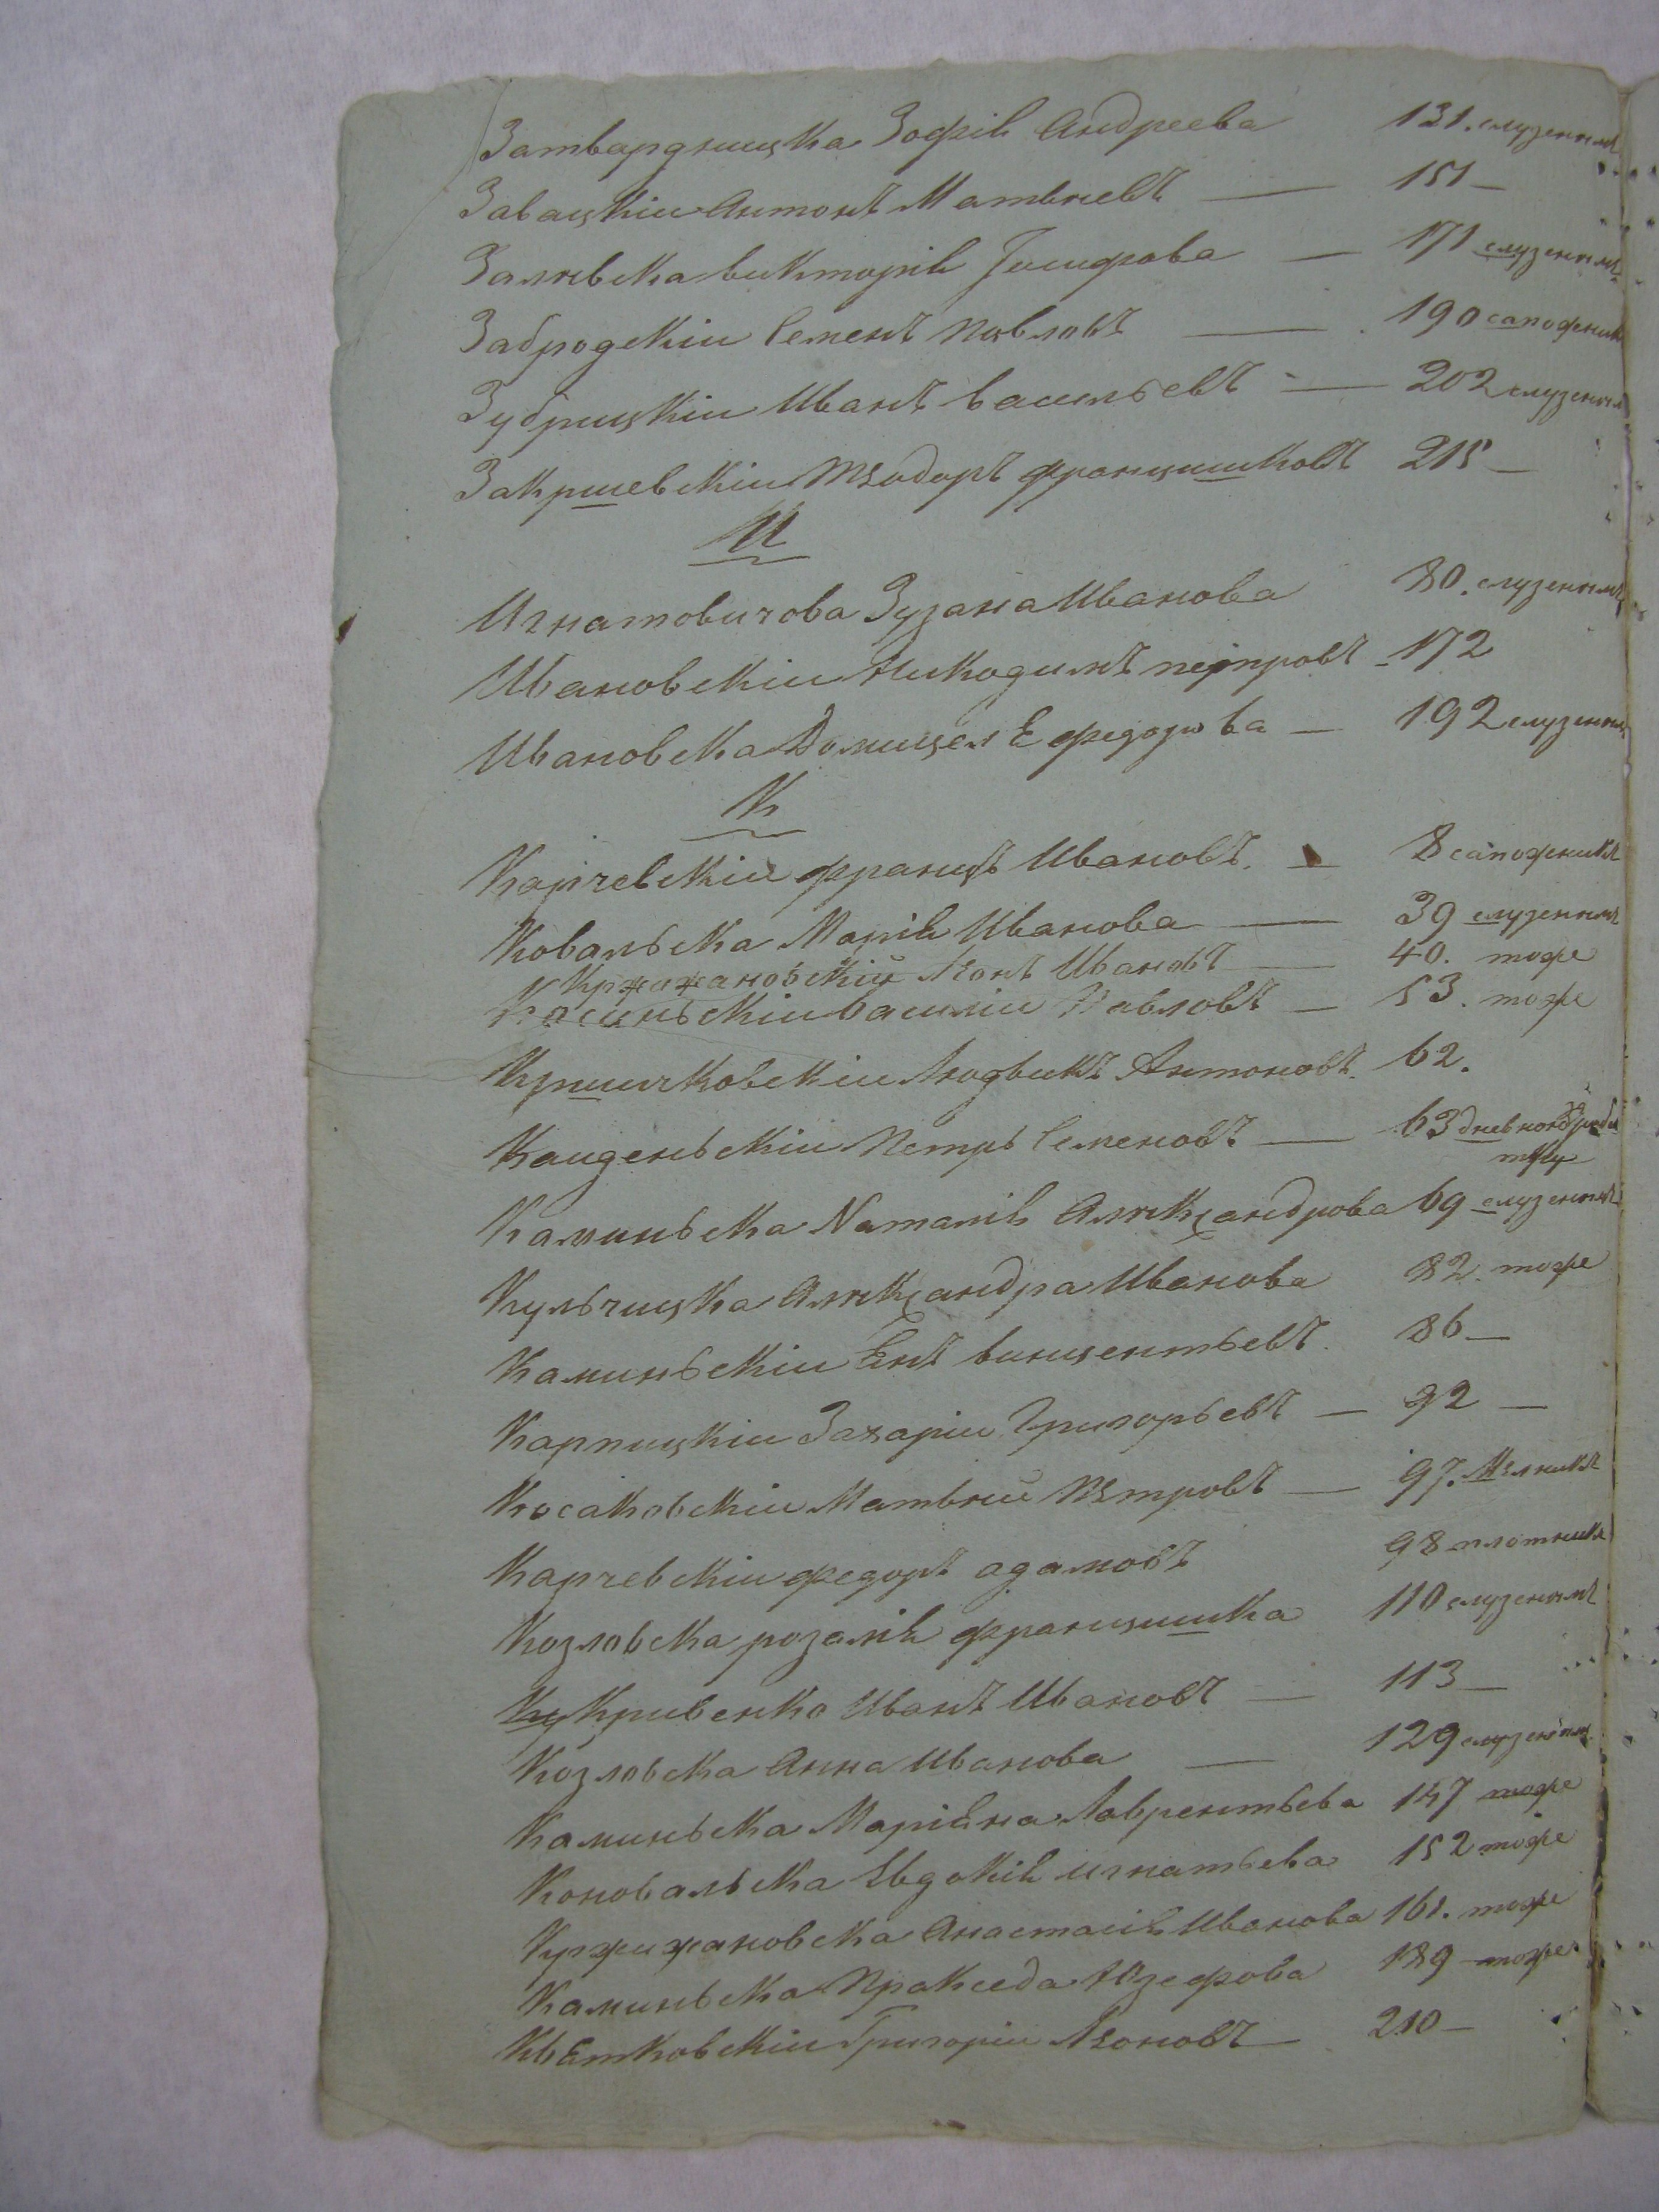 Затвардницка Зофiѣ Андреева 131. слузеннемъ
Завацкiи Антонъ Матвѣевъ — 151 —
Залѣвска викторiѣ Iосифова — 171 слузеннемъ
Забродскiи Семенъ Павловъ — 190 сапожникъ
Зубрицкiи Иванъ васильевъ — 202 слузеннем
Закршевскiи Тѣодоръ францишковъ 215 —
И
Игнатовичова Зузана Иванова 80. слузеннемъ
Ивановскiи Никодимъ петровъ 172
Ивановска Домицел Е федорова — 192 слузеннем
К
Карчевскiи францъ Ивановъ. — 8 сапожникъ
Ковальска Марiѣ Иванова — 39 слузеннемъ
Кржижановскiй Лѣонъ Ивановъ — 40. тоже
Косиньскiи василiи Павловъ — 53. тоже
Кршичковскiи Людвикъ Антоновъ. 62.
Каиденьскiи Петръ Семеновъ — 63 дневной
Каминьска Наталiѣ Алѣксандрова 69 слузеннемъ
Кульчицка Алѣксандра Иванова 82. тоже
Каминьскiи винцентьевъ. 86 —
Карпицкiи Захарiи Григорьевъ — 92 —
Косаковскiи Матвѣй Пѣтровъ — 97. Мѣлникъ
Карчевскiи федоръ адамовъ 98 плотникъ
Козловска розалiѣ францишка 110 слузеннемъ
Ку Кривенко Иванъ Ивановъ — 113 —
Козловска Анна Иванова — 129 слузеннем
Каминьска Марiѣна Лаврентьева 147 тоже
Коновальска Евдокiѣ игнатьева 152 тоже
Кржижановска Анастасiѣ Иванова 161. тоже
Каминьска Пракседа Юзефова 189 тоже
КвЕтковскiи Григорiи Лѣоновъ — 210 —